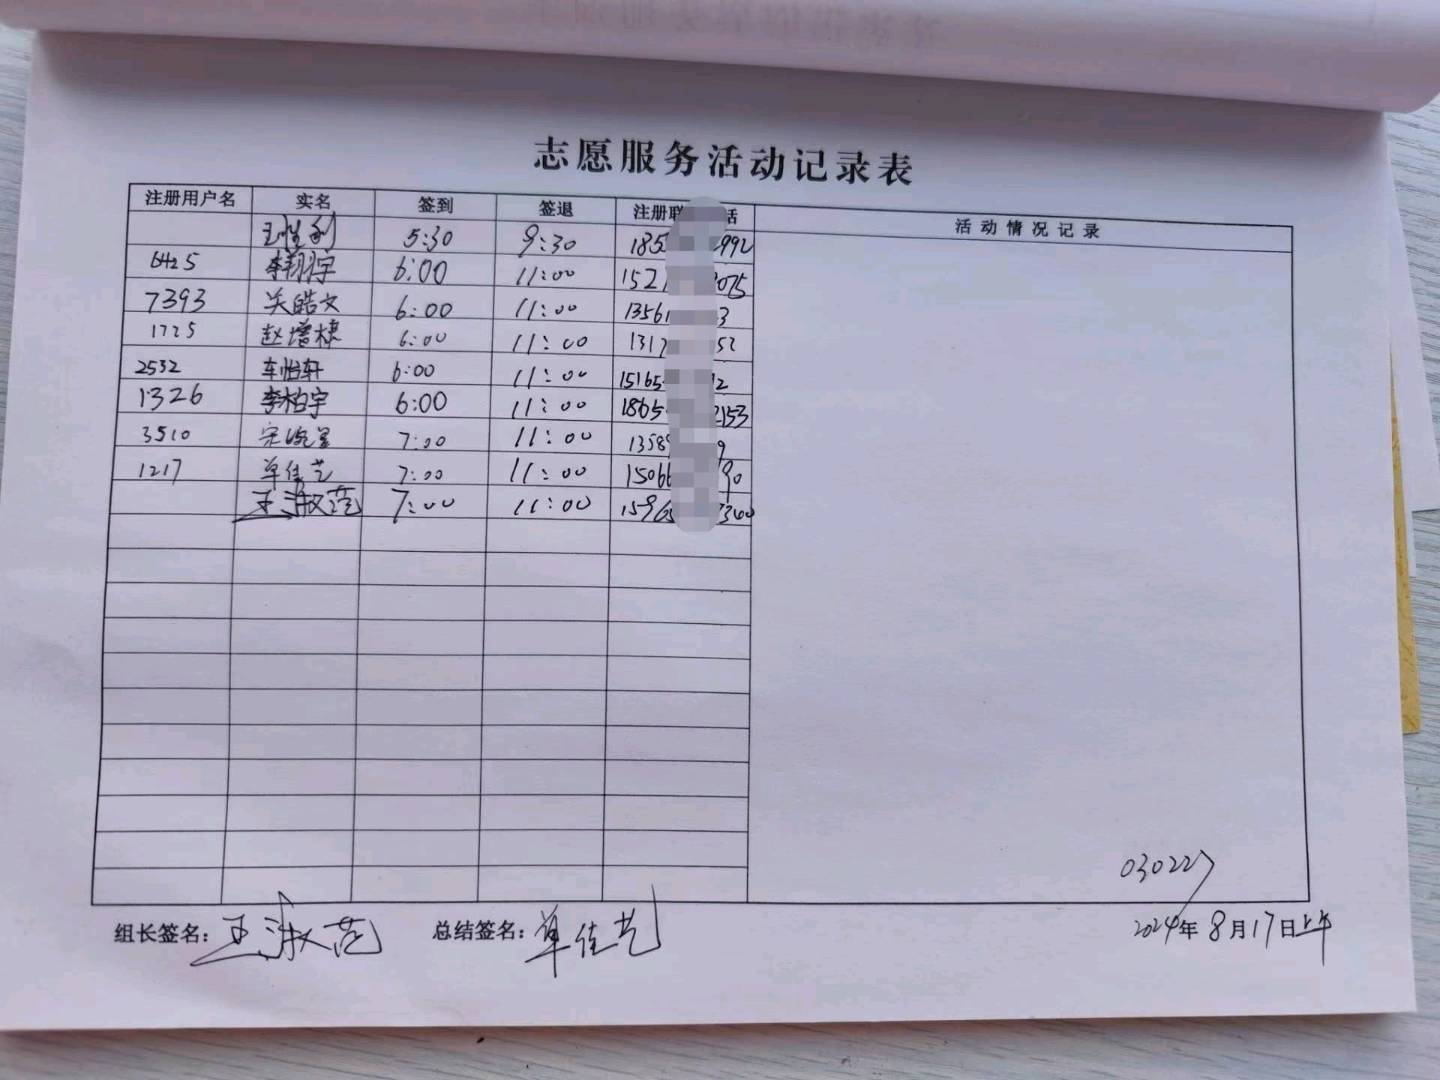 志愿服务活动记录表
注册用户名 实名 签到 签退 注册联 话 活动情况记录
5:30 9:30 185 992
6425 李翔宇 6:00 11:00 1521 2075
7393 关皓文 6:00 11:00 13561 3
1725 赵增棣 6:00 11:00 1317 52
2532 车怡轩 6:00 11:00 15165 12
1326 李柏宇 6:00 11:00 1865 2153
3510 7:00 11:00 1358 9
1217 单佳艺 7:00 11:00 15066 90
王淑范 7:00 11:00 1596 340
030227
组长签名: 王淑范 总结签名: 单佳艺 2024年8月17日上午